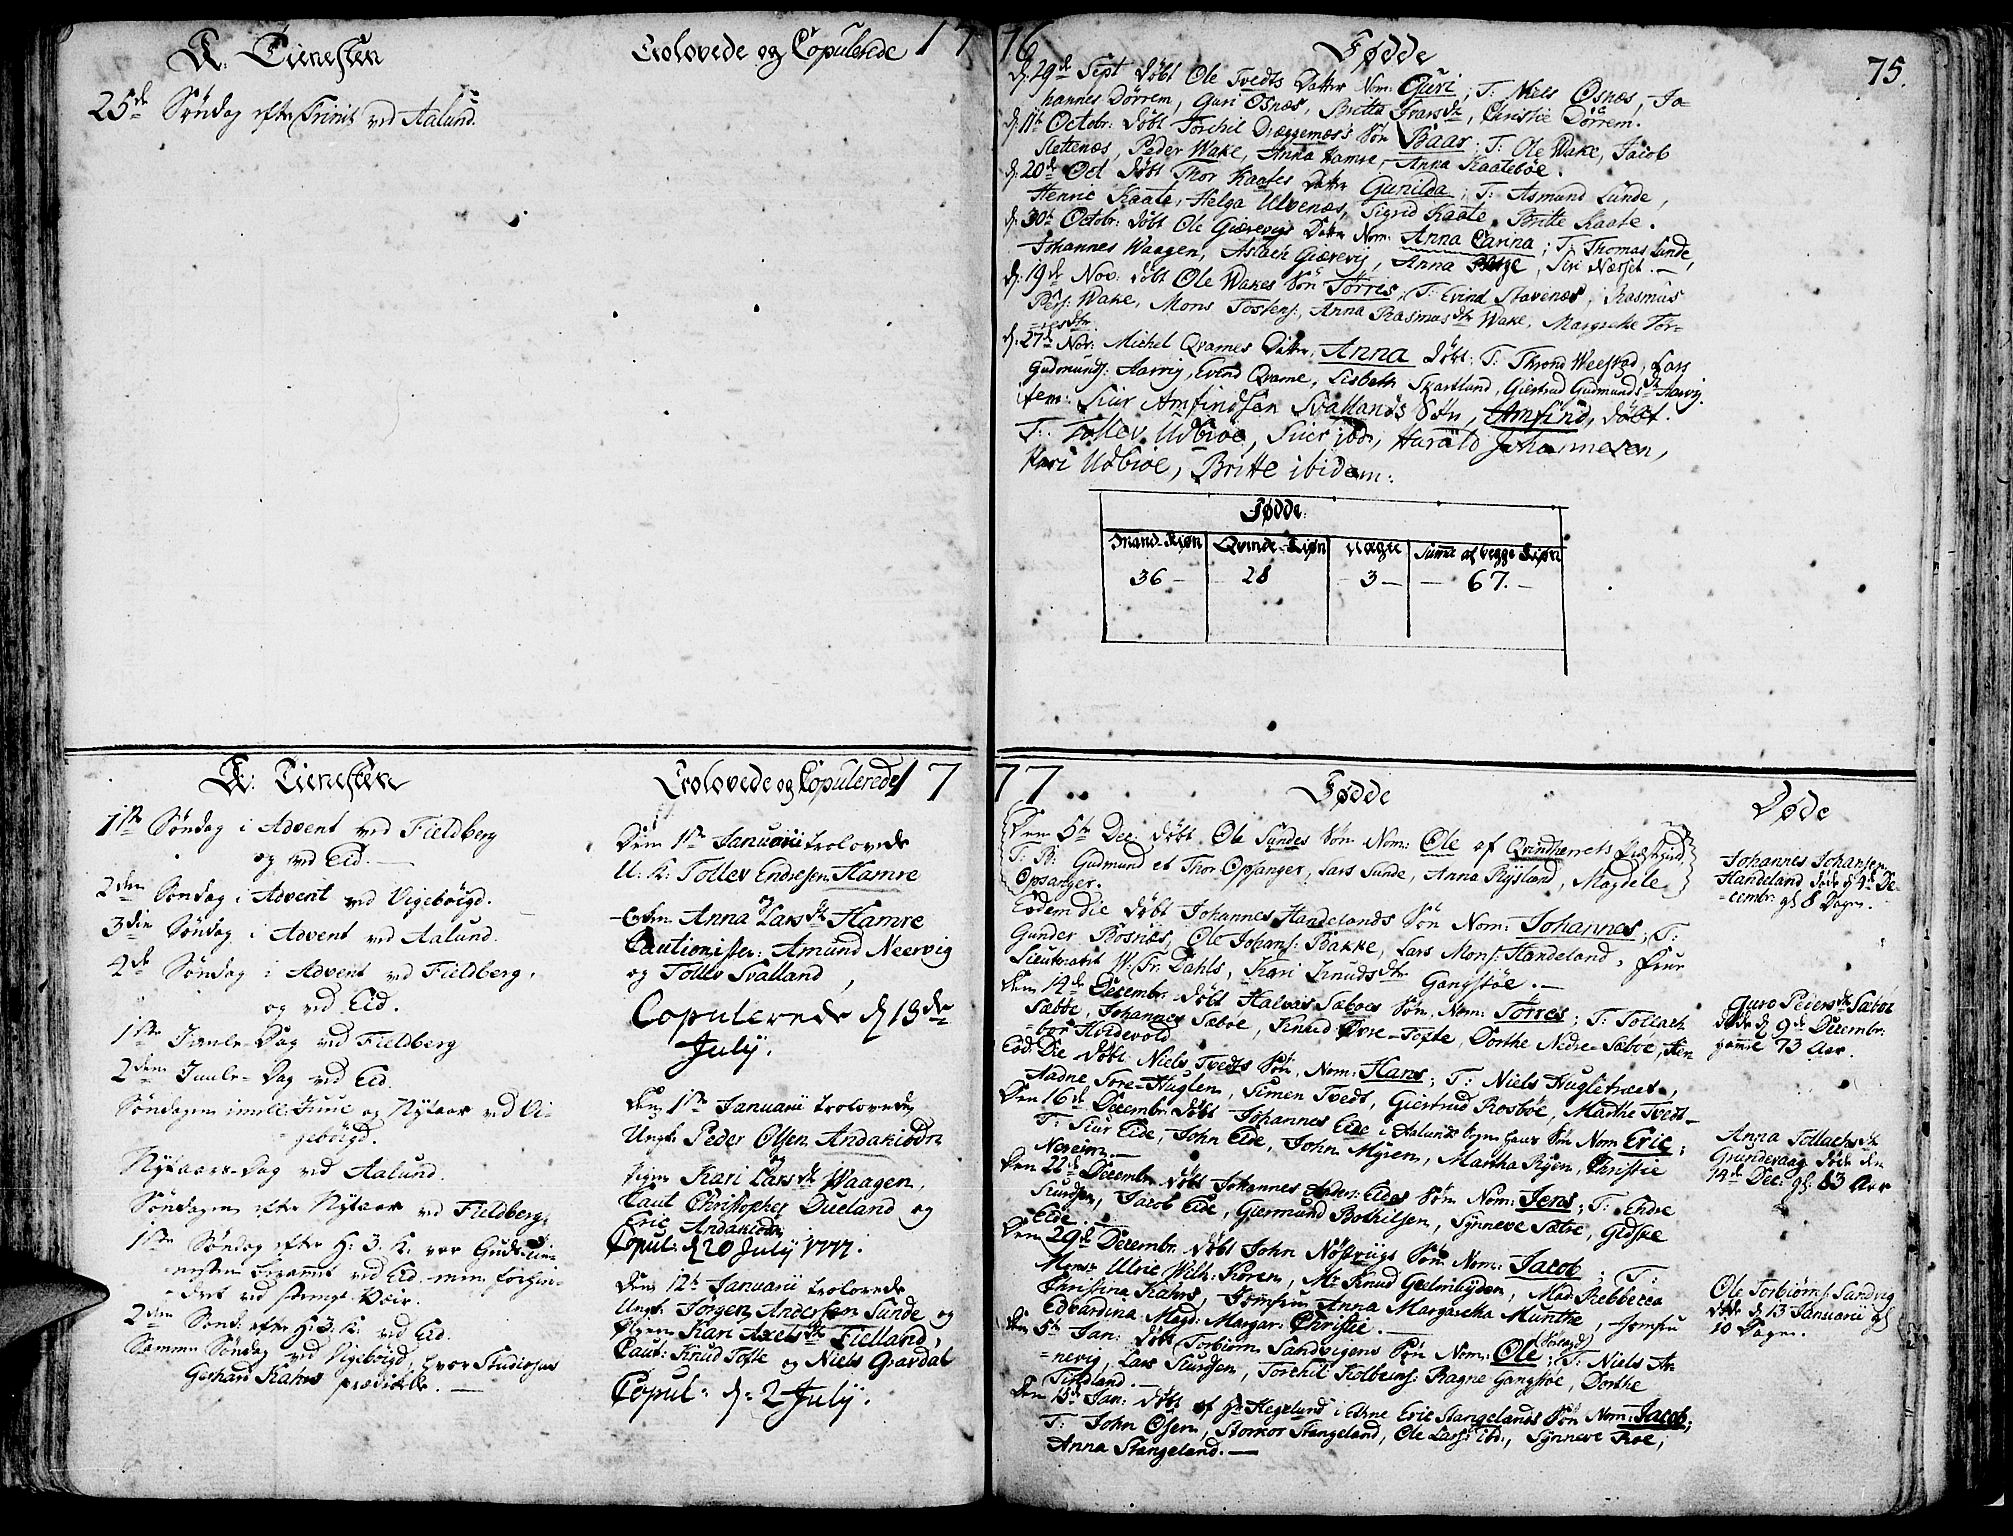 K: Tienesten
Trolovede og Copulerede
1776
Fødde
75.
25de Søndag efter Trinit ved Aalund.
d. 29de Sept døbt Ole Tvedts Datter Nom: Guri, T: Niels Øsnæs, Jo-
hannes Dørrem, Guri Øsnæs, Britta Ivarsdtr, Christie Dørrem.
d. 11te Octobr: døbt Torchil Dræggenæs's Søn Baar; T: Ole Wake, Jacob
Slettenæs, Peder Wake, Anna Hamre, Anna Kaatebøe.
d. 20de Oct døbt Thor Kaates Datter Gunilda; T: Asmund Lunde,
Henric Kaate, Helga Ulvenæs, Sigrid Kaate, Britte Kaate.
d. 30te Octobr: døbt Ole Giærevigs Datter Nom: Anna Carina; T: Thomas Lunde,
Johannes Waagen, Aslach Giærevig, Anna, Siri Næsset.
d. 19de Nov: døbt Ole Wakes Søn Tørres, T: Evind Stavenæs, Rasmus
Peds: Wake, Mons Tostens: Anna Rasmusdtr Wake, Margrethe Tør-
resdtr.
d. 27de Nov: Michel Qvames Datter, Anna døbt: T: Thrond Weestad, Lars
Gudmunds: Aarvig, Evind Qvame, Lisbeth Skartland, Giertrud Gudmundsdtr Aarvig.
item: Siur Amfindsen Svallands Søn, Amfind, døbt.
T: Tollev Udbiøe, Siur ibd, Harald Johannesen,
Kari Udbiøe, Britte ibidem:
Fødde:
Mand-Kiøn Qvinde-Kiøn Uægte Summa af begge Kiøn
36 28 3 67.
K: Tienesten
Trolovede og Copulerede
1777
Fødde
Døde
1ste Søndag i Advent ved Fieldberg
og ved Eid.
2den Søndag i Advent ved Vigebøigd.
3die Søndag i Advent ved Aalund.
4de Søndag i Advent ved Fieldberg,
og ved Eid.
1ste Juule-Dag ved Fieldberg
2den Juule-Dag ved Eid.
Søndagen imell: Juul og Nytaar ved Vi-
gebøigd.
Nytaars-Dag ved Aalund.
Søndagen efter Nytaar ved Fieldberg,
1ste Søndag efter H: 3. K. var Gudstie-
nesten berammet ved Eid, men forhin-
dret ved strenge Veir.
2den Sønd: efter H: 3. K: ved Eid.
Samme Søndag ved Vigebøigd, hvor Studiosus
Gerhard Kahrs prædikede.
Den 1ste Januarii trolovede
U: K: Tollev Endresen Hamre
og
Enken Anna Larsdtr Hamre
Cautionister: Amund Neervig
og Tollev Svalland,
Copulerede d 13de
July.
Den 1ste Januarii trolovede
Ungk: Peder Olsen Andakiodn
og
Pigen Kari Larsdtr Waagen,
Caut Christopher Dueland og
Eric Andakiodn
Copul: d 20 July 1777.
Den 12te Januarii trolovede
Ungk: Jørgen Andersen Sunde og
Pigen Kari Axelsdtr Fielland,
Caut: Knud Tofte og Niels Giærdal
Copul: d: 2 July.
Den 5te Dec: døbt Ole Sundes Søn Nom: Ole af Qvindherrets Præstegield,
T: B: Gudmund et Thor Opsanger, Lars Sunde, Anna Røysland, Magdele
Opsanger.
Eodem die døbt Johannes Handelands Søn Nom: Johannes; T:
Gunder Bosnæs, Ole Johans: Bakke, Lars Mons: Handeland, Frue
Lieutenant W: Fr: Dahls, Kari Knudsdtr Gangstøe.
Den 14de Decembr: døbt Halvor Sæbøes Søn, Nom: Tørres; T: Tollach
Sæbøe, Johannes Sæbøe, Knud Øvre-Tofte, Dorthe Nedre-Sæbøe,
Hvidevold
Eod: Die døbt Niels Tvedts Søn, Nom: Hans; T: Niels Hugletræet,
Aadne Søre-Huglen, Simen Tvedt, Giertrud Rosbøe, Marthe Tvedt.
Den 16de Decembr: døbt Johannes Eide i Aalunds Sogn hans Søn Nom: Eric;
T: Siur Eide, John Eide, John Myren, Martha Ryen, Christie
Nereim.
Den 22de Decembr: døbt Johannes Anders: Eides Søn Nom: Jens; T: Endre
Siursen, Jacob Eide, Giermund Bothilsen, Synneve Sætre, Gidske
Eide.
Den 29de Decembr: døbt John Nøstvigs Søn Nom: Jacob; T:
Monsr Ulric Wilh: Koren, Mr Knud Gielmbyden, Mad: Rebbecca
Christina Kahrs, Jomfru Anna Margaretha Munthe, Jomfru
Edvardina Magd: Margar: Christie.
Den 5te Jan: døbt Torbiørn Sandvigens Søn Nom: Ole; T: Niels Ar-
nevig, Lars Siursen, Torchil Kolbeins: Ragne Gangstøe, Dorthe
Tindland.
Den 15de Jan: døbt af Hr Hegelund i Etne Eric Stangelands Søn Nom: Jacob;
T: John Olsen, Storkor Stangeland, Ole Lars: ibd:, Synneve Roe,
Anna Stangeland.
Johannes Johansen
Handeland døde d 4de De-
cembr: gl 8 Dage.
Guro Pedersdtr Sæbøe
døde d 9de Decembr:
gamel 73 Aar.
Anna Tollachsdtr
Grindevaag døde den
14de Dec: gl 83 Aar
Ole Torbiørns: Sandvig
døde d 13 Januarii gl
10 Dage.